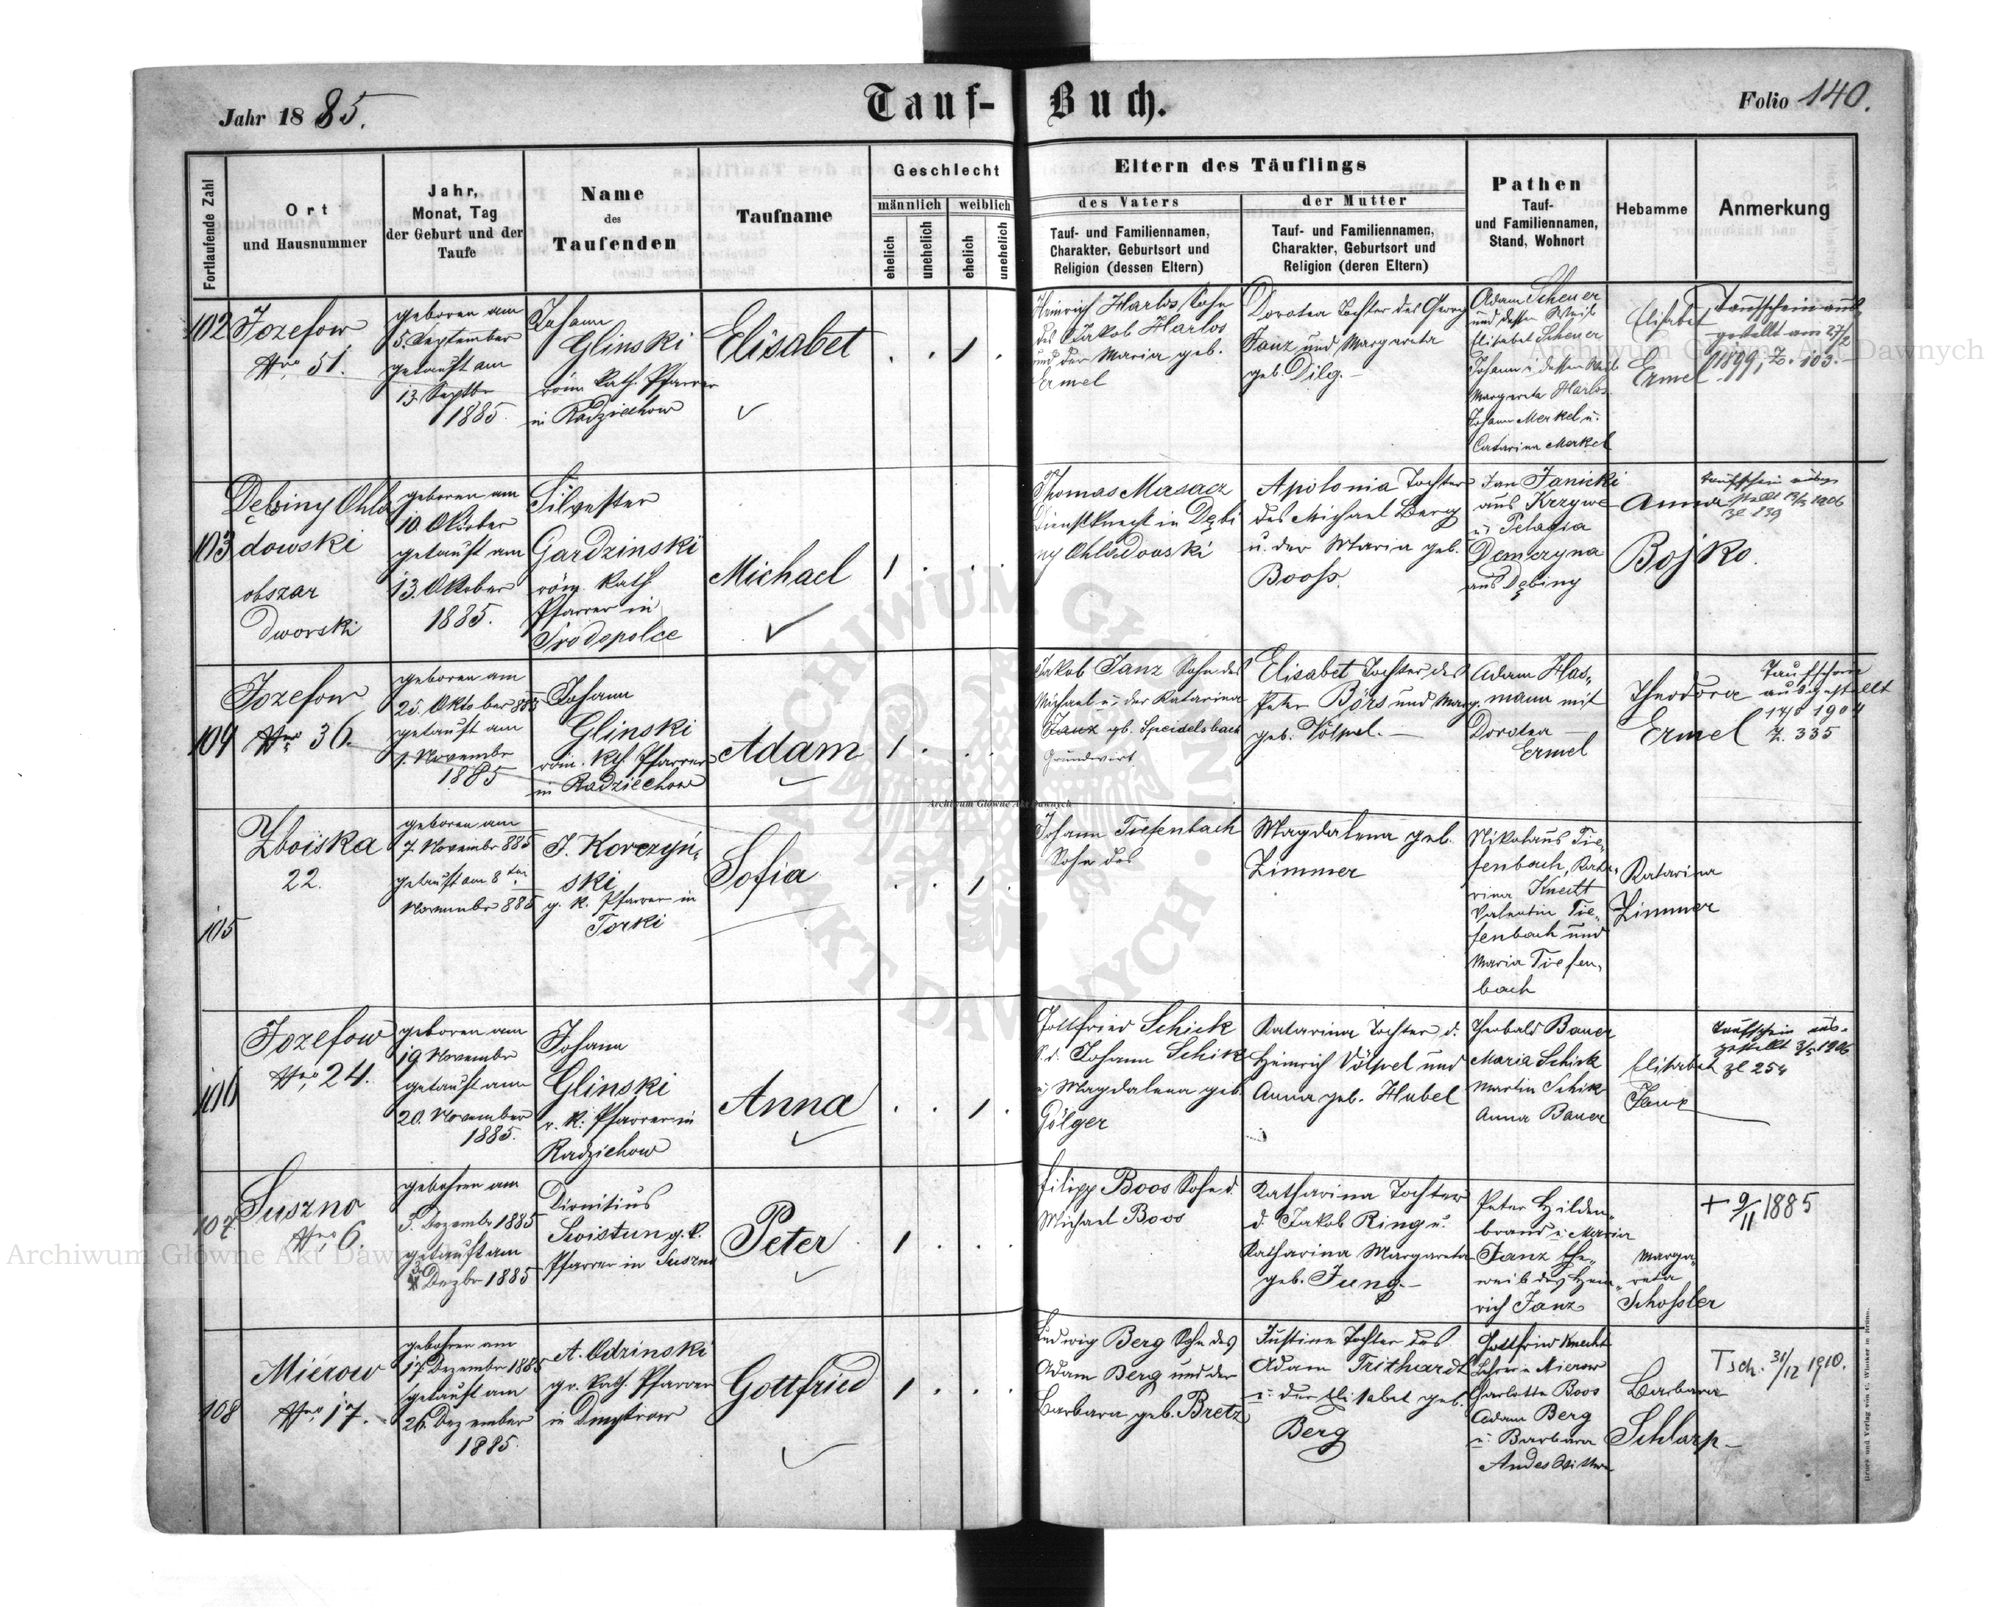 Jahr 1885.
Tauf-Buch.
Folio 140.
Fortlaufende Zahl
Ort
und Hausnummer
Jahr,
Monat, Tag
der Geburt und der
Taufe
Name
des
Taufenden
Taufname
Geschlecht
männlich
weiblich
ehelich
unehelich
ehelich
unehelich
Eltern des Täuflings
des Vaters
Tauf- und Familiennamen,
Charakter, Geburtsort und
Religion (dessen Eltern)
der Mutter
Tauf- und Familiennamen,
Charakter, Geburtsort und
Religion (deren Eltern)
Pathen
Tauf-
und Familiennamen,
Stand, Wohnort
Hebamme
Anmerkung
102
Jozefow
Nro 51.
geboren am
5. September
getauft am
13. Septbr
1885.
Johann
Glinski
röm. Kath. Pfarrer
in Radziechow
Elisabet
. . 1 .
Heinrich Harlos Sohn
des Jakob Harlos
und der Maria geb.
Ermel
Dorotea Tochter des Georg
Janz und Margareta
geb. Dilg.
Adam Scheuer
und dessen Weib
Elisabet Scheuer
Johann u. dessen Weib
Margareta Harlos
Johann Merkel u.
Catarina Merkel
Elisabet
Ermel
Taufschein aus-
gestellt am 27/2
1899, Z. 103.
103
Dębiny Ohla
dowski
obszar
Dworski
geboren am
10. Oktober
getauft am
13. Oktober
1885.
Silvester
Gardzinski
röm. Kath.
Pfarrer in
Michael
1 . . .
Thomas Masacz
Dienstknecht in Dębi
ny Ohladowski
Apolonia Tochter
des Michael Berg
u. der Maria geb.
Booß.
Jan Janicki
aus Krzywe
u. Pelagia
Demczyna
aus Dębiny
Anna
Bojko.
Taufschein
1906
104
Jozefow
Nro 36.
geboren am
25. Oktober 885
getauft am
1. Novembr
1885
Johann
Glinski
röm. Kth. Pfarrer
in Radziechow
Adam
1 . . .
Jakob Janz Sohn des
Michael u. der Katarina
Janz gb. Speidelsbach
Grundwirt
Elisabet Tochter des
Peter Börs und Marg.
geb. Völpel.
Adam Has-
mann mit
Dorotea
Ermel
Theodora
Ermel
Taufschein
ausgestellt
1904
Z. 335
105
Zboiska
22.
geboren am
7. Novembr 885
getauft am 8 ten
Novembr 885
J. Korczyń-
ski
g. k. Pfarrer in
Torki
Sofia
. . 1 .
Johann Tiefenbach
Sohn des
Magdalena geb.
Zimmer
Nikolaus Tie-
fenbach, Kata-
rina Knecht
Valentin Tie-
fenbach und
Maria Tiefen-
bach
Katarina
Zimmer
106
Jozefow
Nro 24.
geboren am
19 Novembr
getauft am
20. November
1885.
Johann
Glinski
r. k. Pfarrer in
Radziechow
Anna
. . 1 .
Gottfried Schick
S. d. Johann Schick
u Magdalena geb.
Gölger
Katarina Tochter d.
Heinrich Völpel und
Anna geb. Hubel
Theobald Bauer
Maria Schick
Martin Schick
Anna Bauer
Elisabet
Janz
Taufschein aus-
gestellt 3/5 1906
zl 254
107
Suszno
Nro 6.
gebohren am
3. Dezembr 1885
getauft am
Dezbr 1885
Dionitius
Swistun g. k.
Pfarrer in Suszno
Peter
1 . . .
Filipp Boos Sohn d.
Michael Boos
Katharina Tochter
d. Jakob Ring u.
Katharina Margareta
geb. Jung.
Peter Hilden-
brand u. Maria
Janz Ehe-
weib des Hein-
rich Janz
Marga-
reta
Schoßler
+ 9/11 1885
108
Mierow
Nro 17.
gebohren am
17. Dezembr 1885
getauft am
26. Dezember
1885.
A. Odzinski
gr. kath. Pfarrer
in Dmytrow
Gottfried
1 . . .
Ludwig Berg Sohn des
Adam Berg und der
Barbara geb. Bretz
Justine Tochter des
Adam Trithardt
u. der Elisabet geb.
Berg
Gottfried Knecht
Lehrer Mierow
Charlotte Boos
Adam Berg
u. Barbara
Andes
Barbara
Schlarp
Tsch. 31/12 1910.
Druck und Verlag von C. Winiker in Brünn.
Archiwum Główne Akt Dawnych
Archiwum Główne Akt Dawnych
Archiwum Główne Akt Dawnych
ARCHIWUM GŁÓWNE AKT DAWNYCH